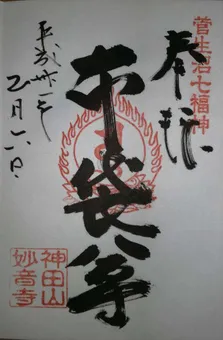 菅生沼七福神
奉拝
布袋尊
平成卅一年
一月六日
神田山
妙音寺